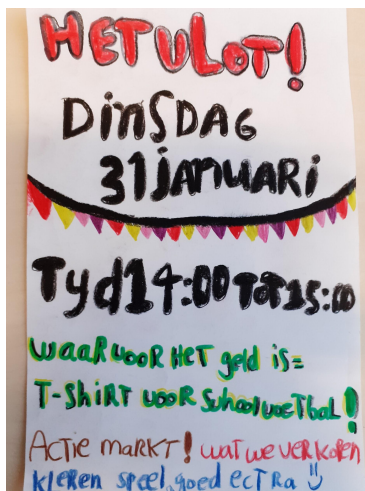 HET VLOT!
DINSDAG
31 JANUARI
Tyd 14:00 TOT 15:00
WAAR VOOR HET geld is=
T-SHIRT VOOR School voeTbal!
ACTIE MARKT! WAT WE VERKOPEN
KleREN speel.goed ecTRa